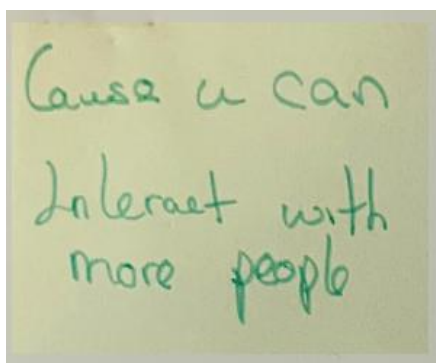 Cause u can
Interact with
more people